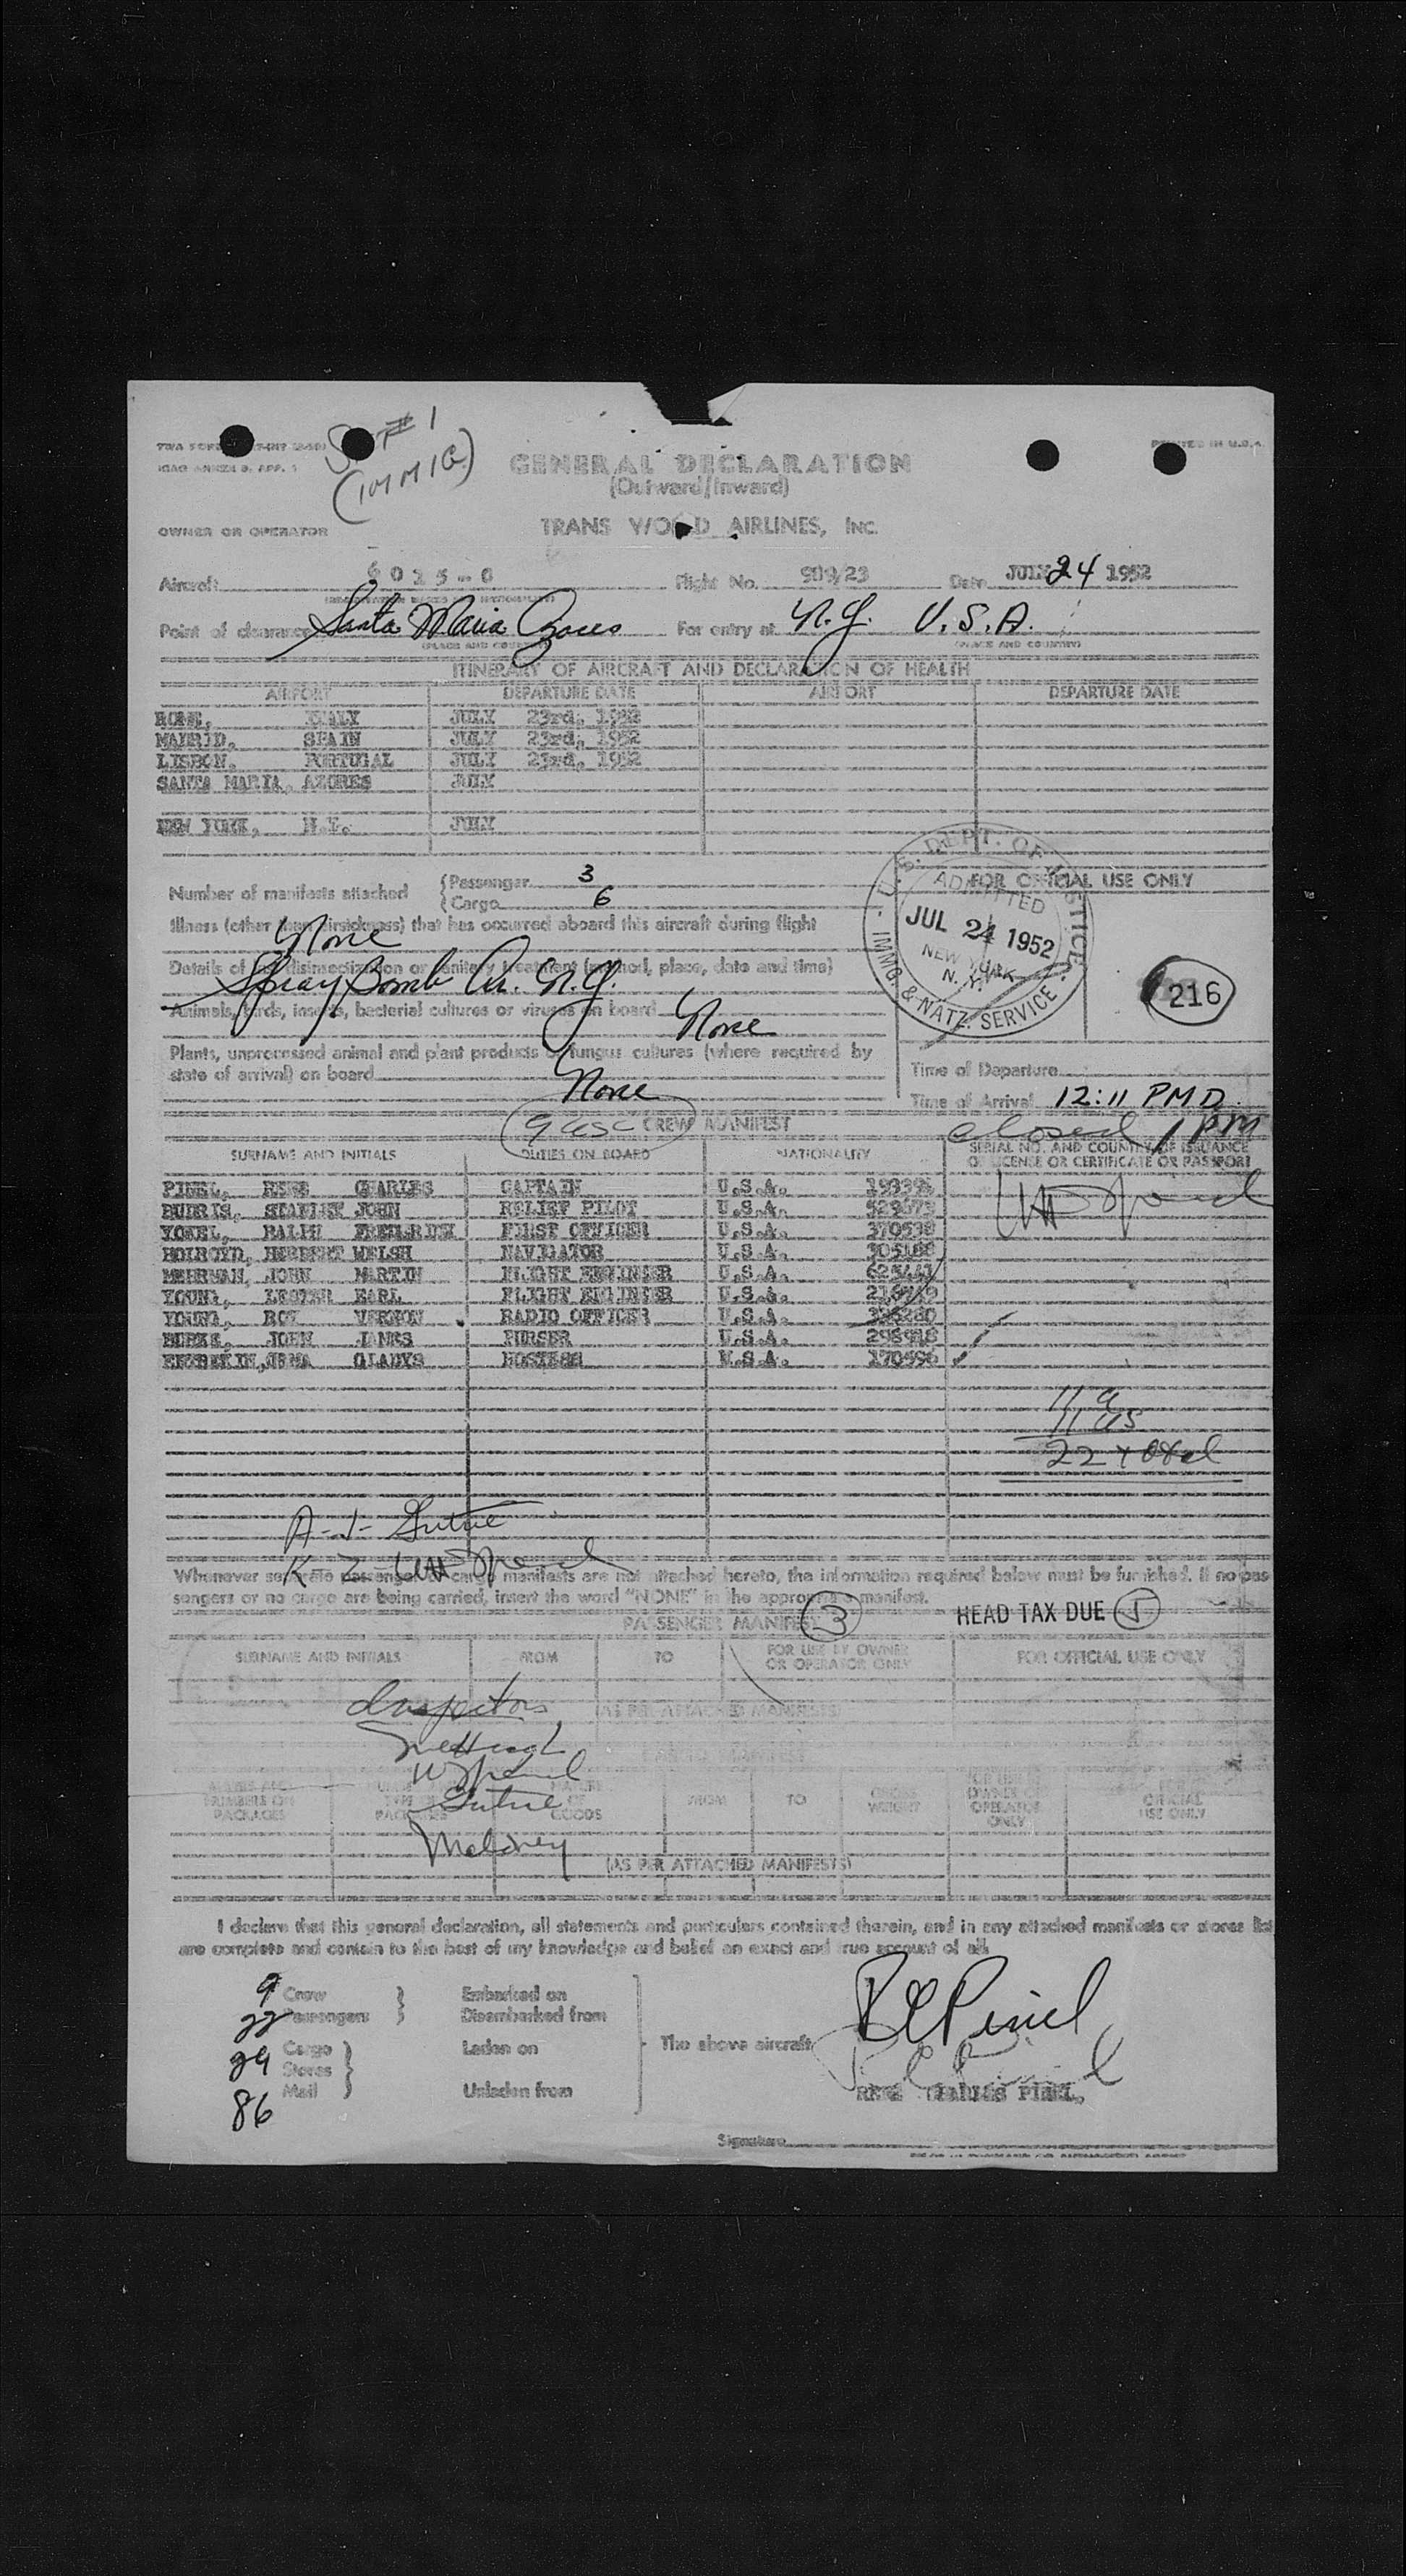 # 1
(IMMIG)
PRINTED IN U.S.A.
ICAO ANNEX 9, APP. 1
GENERAL DECLARATION
(Outward/Inward)
OWNER OR OPERATOR
TRANS WORLD AIRLINES, INC.
Aircraft 6025-C Flight No. 909/23 Date JULY 24 1952
Point of clearance Santa Maria Azores For entry at N.Y. U.S.A.
(PLACE AND COUNTRY) (PLACE AND COUNTRY)
ITINERARY OF AIRCRAFT AND DECLARATION OF HEALTH
AIRPORT DEPARTURE DATE AIRPORT DEPARTURE DATE
ROME, ITALY JULY 23rd, 1952
MADRID, SPAIN JULY 23rd, 1952
LISBON, PORTUGAL JULY 23rd, 1952
SANTA MARIA, AZORES JULY
NEW YORK, N.Y. JULY
Number of manifests attached {Passenger 3
{Cargo 6
FOR OFFICIAL USE ONLY
U.S. DEPT. OF JUSTICE
ADMITTED
JUL 24 1952
NEW YORK
N.Y.
IMMG. & NATZ. SERVICE
216
Illness (other than airsickness) that has occurred aboard this aircraft during flight
None
Details of disinsectization or sanitary treatment (method, place, date and time)
Spray Bomb Arr. N.Y.
Animals, birds, insects, bacterial cultures or viruses on board None
Plants, unprocessed animal and plant products or fungus cultures (where required by
state of arrival) on board None
Time of Departure
Time of Arrival 12:11 PM D
closed 1 PM
9 usc CREW MANIFEST
SURNAME AND INITIALS DUTIES ON BOARD NATIONALITY SERIAL NO. AND COUNTRY OF ISSUANCE
OF LICENSE OR CERTIFICATE OR PASSPORT
PINEL, RENE CHARLES CAPTAIN U.S.A.
STANLEY JOHN RELIEF PILOT U.S.A.
RALPH FREDERICK FIRST OFFICER U.S.A. 370538
HOLROYD, HERBERT WELSH NAVIGATOR U.S.A.
JOHN MARTIN FLIGHT ENGINEER U.S.A.
YOUNG, LESTER EARL FLIGHT ENGINEER U.S.A.
YOUNG, ROY VERNON RADIO OFFICER U.S.A.
BURKE, JOHN JAMES PURSER U.S.A. 298918
GLADYS HOSTESS U.S.A. 170996
11 a
11 us
22 total
Whenever separate passenger or cargo manifests are not attached hereto, the information required below must be furnished. If no pas-
sengers or no cargo are being carried, insert the word "NONE" in the appropriate manifest.
PASSENGER MANIFEST 3 HEAD TAX DUE
SURNAME AND INITIALS FROM TO FOR USE BY OWNER
OR OPERATOR ONLY FOR OFFICIAL USE ONLY
Inspectors
(AS PER ATTACHED MANIFESTS)
CARGO MANIFEST
NUMBERS ON
PACKAGES
GOODS
FROM TO GROSS
WEIGHT
OWNER OR
OPERATOR
ONLY
OFFICIAL
USE ONLY
Maloney
(AS PER ATTACHED MANIFESTS)
I declare that this general declaration, all statements and particulars contained therein, and in any attached manifests or stores list
are complete and contain to the best of my knowledge and belief an exact and true account of all
9 Crew Embarked on
22 Passengers Disembarked from
24 Cargo Laden on The above aircraft
Stores
86 Mail Unladen from
R C Pinel
RENE CHARLES PINEL,
Signature